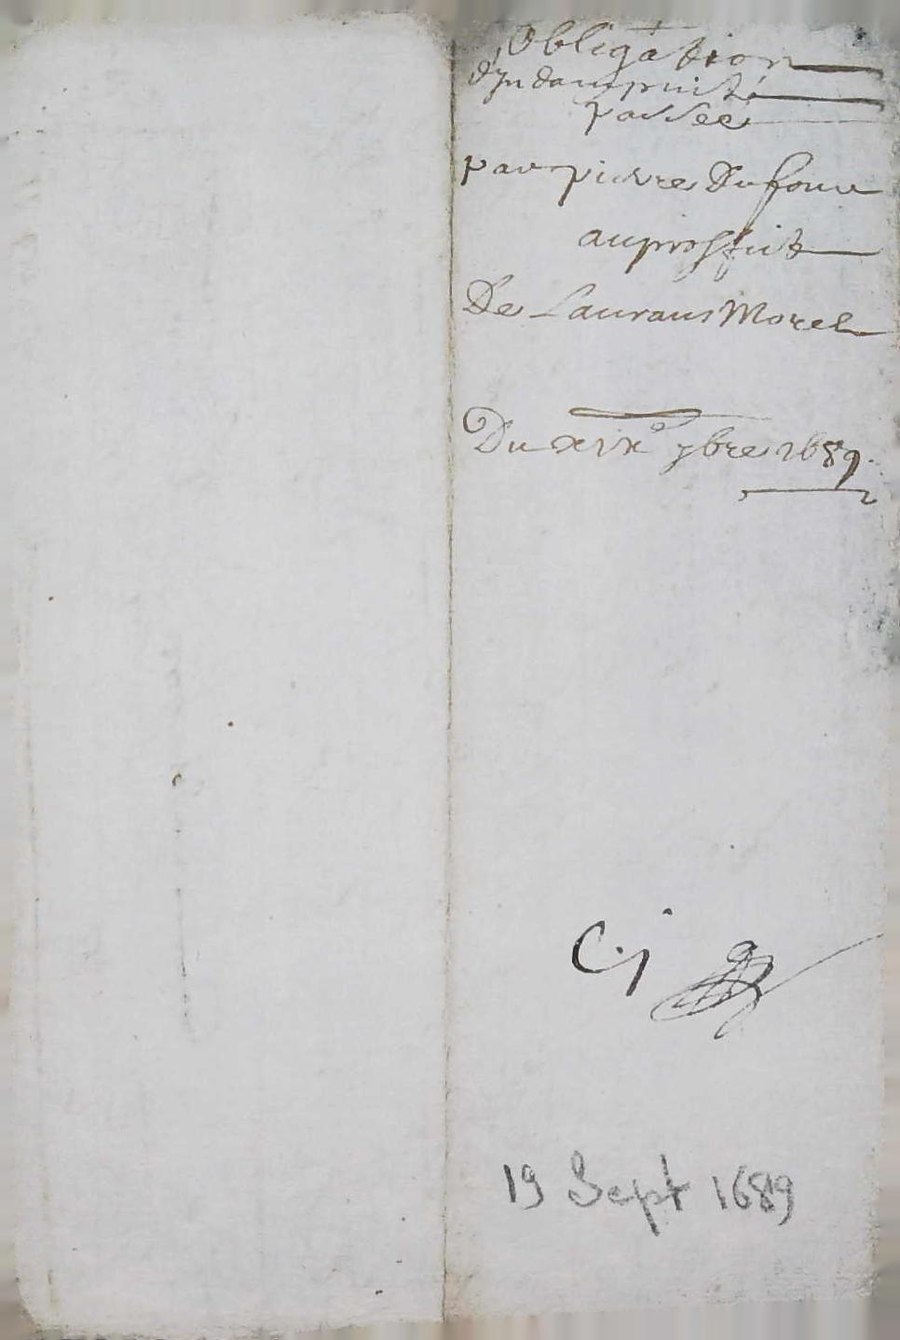 Obligation
d'Indampnité
passée
par pierre Dufour
au proffit
De Laurans Morel
Du xix^e 7bre 1689.
C. j
19 Sept 1689